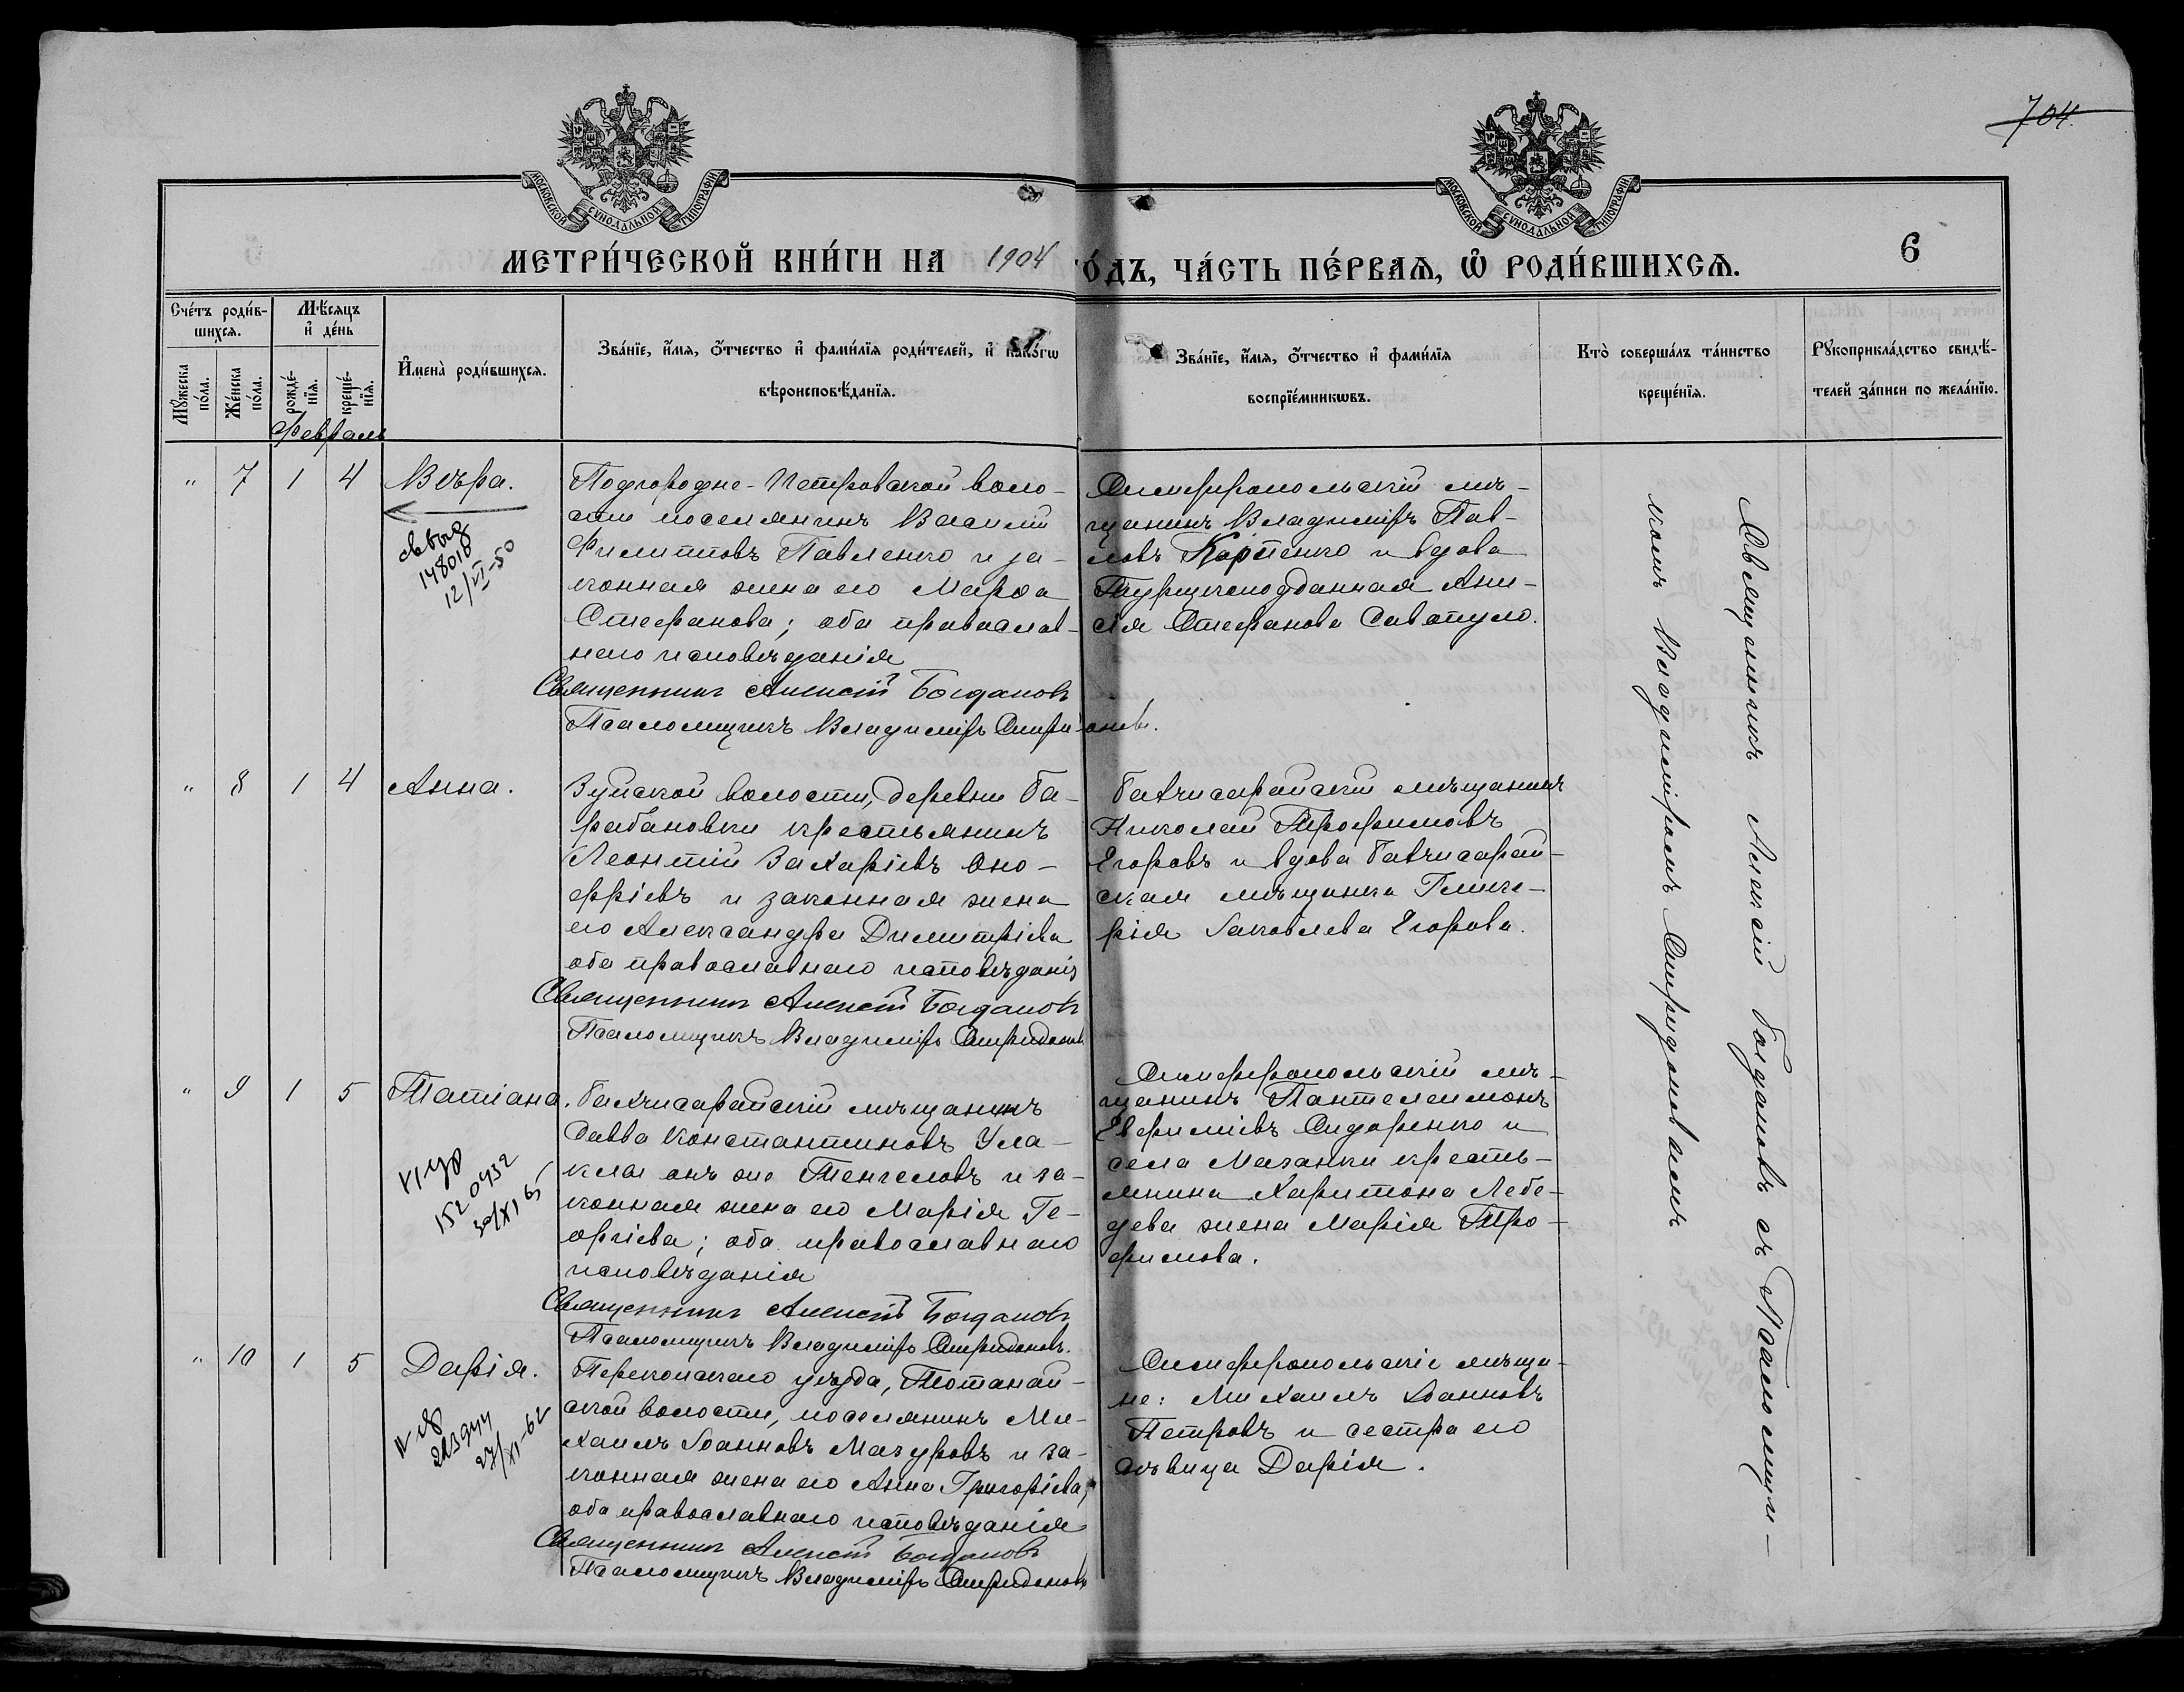 704.
МОСКОВСКОЙ СѴНОДАЛЬНОЙ ТИПОГРАФІИ
МОСКОВСКОЙ СѴНОДАЛЬНОЙ ТИПОГРАФІИ
МЕТРИ́ЧЕСКОЙ КНИ́ГИ НА 1904 ГО́ДЪ, ЧА́СТЬ ПЕ́РВАЯ, Ѽ РОДИ́ВШИХСЯ.
6
Сче́тъ роди́в-
шихся.
Мѣ́сяцъ
и҆ де́нь
Мꙋ́жеска
по́ла.
Же́нска
по́ла.
рожде́-
нїѧ.
креще́-
нїѧ.
И҆мена̀ роди́вшихся.
Зва́нїе, и҆́мя, ѻ҆́тчество и҆ фами́лїя роди́телей, и҆ како́гѡ
вѣроисповѣ́данїя.
Зва́нїе, и҆́мя, ѻ҆́тчество и҆ фами́лїя
воспрїе́мникѡвъ.
Кто̀ соверша́лъ та́инство
креще́нїя.
Рꙋкоприкла́дство свидѣ́-
телей за́писи по жела́нїю.
Февраль
" 7 1 4 Вѣра.
148010
12/VI-50
Подгородне-Петровской воло-
сти поселянинъ Василій
Филипповъ Павленко и за-
конная жена его Марѳа
Стефанова; оба православ-
наго исповѣданія
Священникъ Алексій Богдановъ
Псаломщикъ Владиміръ Спиридоновъ.
Симферопольскій мѣ-
щанинъ Владиміръ Пав-
ловъ Карпенко и вдова
Турецкоподданная Ани-
сія Стефанова Савопуло.
" 8 1 4 Анна.
Зуйской волости, деревни Ба-
рабановки крестьянинъ
Леонтій Захаріевъ Оно-
фріевъ и законная жена
его Александра Димитріева
оба православнаго исповѣданія
Священникъ Алексій Богдановъ
Псаломщикъ Владиміръ Спиридоновъ
Бахчисарайскій мѣщанинъ
Николай Трофимовъ
Егоровъ и вдова Бахчисарай-
ская мѣщанка Глике-
рія Іаковлева Егорова.
" 9 1 5 Татіана.
1520432
30/XI 65
Бахчисарайскій мѣщанинъ
Савва Константиновъ Ула-
клы онъ же Тенгеловъ и за-
конная жена его Марія Ге-
оргіева; оба православнаго
исповѣданія
Священникъ Алексій Богдановъ
Псаломщикъ Владиміръ Спиридоновъ.
Симферопольскій мѣ-
щанинъ Пантелеимонъ
Евфиміевъ Сидоренко и
села Мазанки кресть-
янина Харитона Лебе-
дева жена Марія Тро-
фимова.
" 10 1 5 Дарія.
27/XI-62
Перекопскаго уѣзда, Тотанай-
ской волости, поселянинъ Ми-
хаилъ Іоанновъ Мазуровъ и за-
конная жена его Анна Григоріева,
оба православнаго исповѣданія
Священникъ Алексій Богдановъ
Псаломщикъ Владиміръ Спиридоновъ
Симферопольскіе мѣща-
не: Михаилъ Іоанновъ
Петровъ и сестра его
дѣвица Дарія.
Священникъ Алексій Богдановъ съ Псаломщи-
комъ Владиміромъ Спиридоновымъ